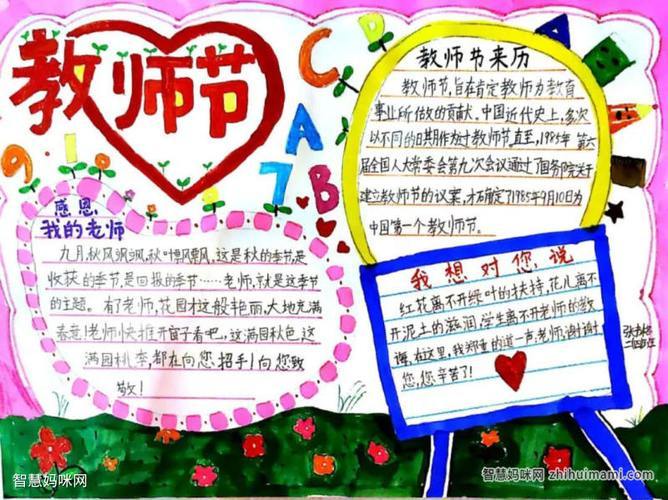 教师节
感恩
我的老师
九月,秋风飒飒,秋叶飘飘,这是秋的季节,是
收获的季节,是回报的季节……老师,就是这季节
的主题。有了老师,花园才这般艳丽,大地充满
春意!老师快推开窗子看吧,这满园秋色,这
满园桃李,都在向您招手!向您致
敬!
C D A
A
B
9 1 0 7
教师节来历
教师节,旨在肯定教师为教育
事业所做的贡献。中国近代史上,多次
以不同的日期作为过教师节。直至,1985年第六
届全国人大常委会第九次会议通过了国务院关于
建立教师节的议案,才确定了1985年9月10日为
中国第一个教师节。
我想对您说
红花离不开绿叶的扶持,花儿离不
开泥土的滋润,学生离不开老师的教
诲,在这里,我郑重的道一声,老师,谢谢
您,您辛苦了!
智慧妈咪网
智慧妈咪网 zhihuimami.com